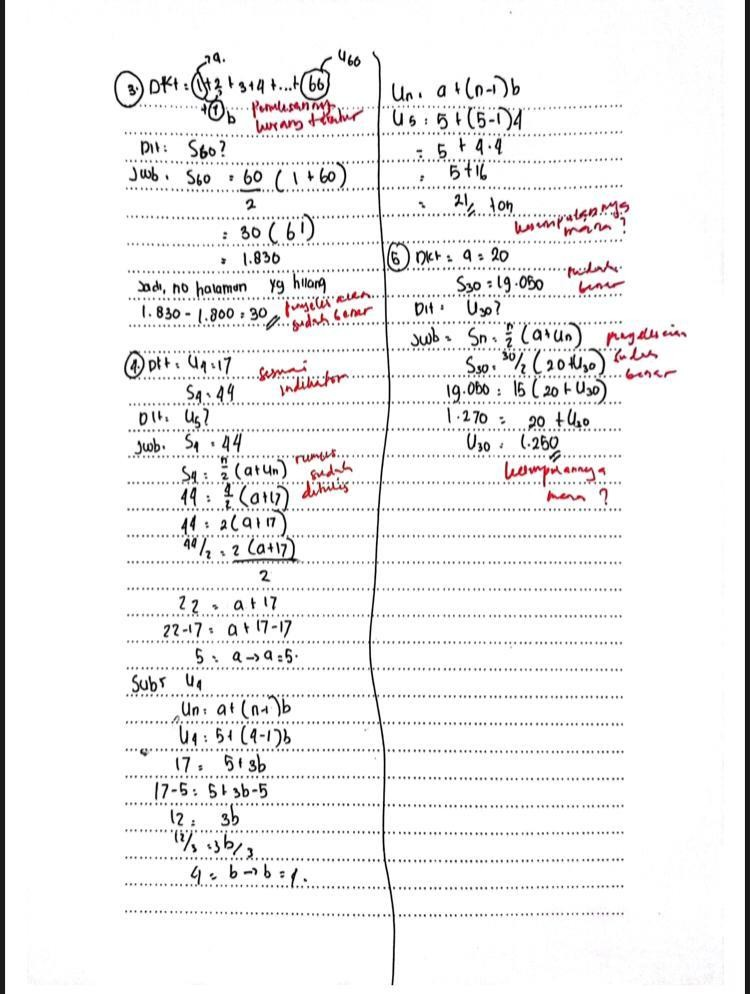 →a.
U60
3. Dkt = 1 + 2 + 3 + 4 + ... + 60
+1 b
Penulisannya
kurang teratur
Dit: S60?
Jwb. S60 = 60/2 (1 + 60)
= 30 (61)
= 1.830
Jadi, no halaman yg hilang
1.830 - 1.800 = 30 //
Penyelesaian
sudah benar
4. Dkt : U4 = 17
S4 = 44
sesuai
indikator
Dit: U5?
Jwb. S4 = 44
S4 = n/2 (a + Un)
rumus
sudah
ditulis
44 = 4/2 (a + 17)
44 = 2 (a + 17)
44/2 = 2 (a + 17)/2
22 = a + 17
22 - 17 = a + 17 - 17
5 = a → a = 5.
Subs U4
Un = a + (n-1)b
U4 = 5 + (4-1)b
17 = 5 + 3b
17 - 5 = 5 + 3b - 5
12 = 3b
12/3 = 3b/3
4 = b → b = 4.
Un = a + (n-1)b
U5 = 5 + (5-1)4
= 5 + 4.4
= 5 + 16
= 21 // ton
kesimpulannya
mana?
5 Dkt = a = 20
S30 = 19.050
sudah
benar
Dit : U30?
Jwb = Sn = n/2 (a + Un)
S30 = 30/2 (20 + U30)
penyelesaian
sudah
benar
19.050 = 15 (20 + U30)
1.270 = 20 + U30
U30 = 1.250 //
kesimpulannya
mana?